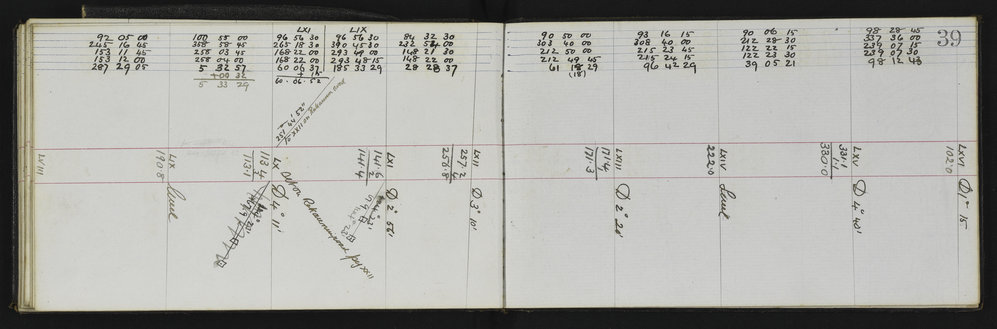 LXI LIX
92 05 00
245 16 45
153 11 45
153 12 00
287 29 05
100 55 00
358 58 45
258 03 45
258 04 00
5 32 57
+00 32
5 33 29
96 56 30
265 18 30
168 22 00
168 22 00
60 06 37
+ 15
60 . 06 . 52
96 56 30
390 45 30
293 49 00
293 48 15
185 33 29
84 32 30
232 54 00
148 21 30
148 22 00
28 28 37
90 50 00
303 40 00
212 50 00
212 49 45
61 18 29
(18)
93 16 15
308 40 00
215 23 45
215 24 15
96 42 29
90 06 15
212 28 30
122 22 15
122 23 30
39 05 21
98 28 45
337 36 00
239 07 15
239 07 30
98 12 43
39
251° 44' 52"
To XXII on Rakaunui road
LVIII
LX
190.8
Level
LX
113.4
113.1
D 4° 11'
LXI
141.6
.2
141.4
D 2° 56'
LXII
257.2
256.8
D 3° 10'
LXIII
171.4
171.3
D 2° 20'
LXIV
222.0
Level
LXV
331.1
1.1
330.0
D 4° 40'
LXVI
102.0
D 1° 15
Rakaunui road pg XXII